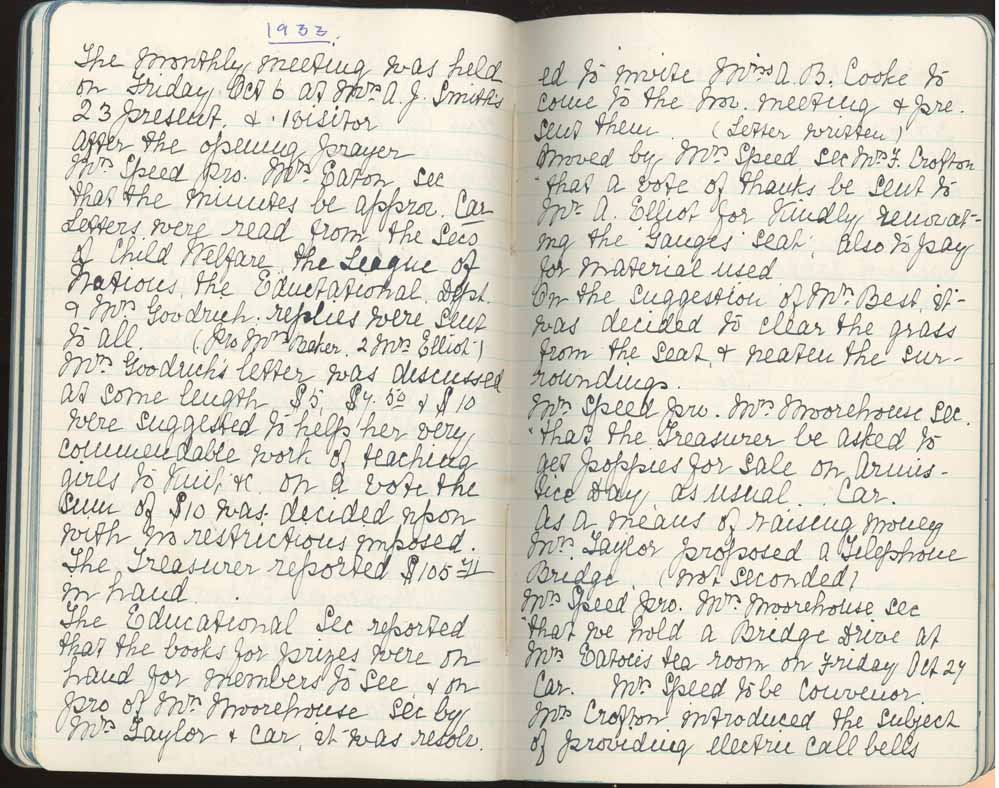 1933.
The monthly meeting was held
on Friday Oct 6 at Mrs A. J. Smith's
23 present, & 1 visitor
after the opening prayer
Mrs Speed pro. Mrs Eaton sec
that the minutes be approv. Car
Letters were read from the Secs
of Child Welfare, the League of
Nations, the Educational Dept.
& Mrs Goodrich. replies were sent
to all. (Pro Mrs Baker. 2 Mrs Elliot)
Mrs Goodrich's letter was discussed
at some length $5, $7.50 & $10
were suggested to help her very
commendable work of teaching
girls to Knit, &c. on a vote the
sum of $10 was decided upon
with no restrictions imposed.
The Treasurer reported $105.71
in hand.
The Educational Sec reported
that the books for prizes were on
hand for members to see, & on
pro of Mrs Moorehouse sec by
Mrs Taylor & car, it was resolv.
ed to invite Mrs A. B. Cooke to
come to the Nov. meeting & pre.
sent them. (Letter written)
Moved by Mrs Speed sec Mrs F. Crofton
"that a vote of thanks be sent to
Mr A. Elliot for Kindly renovat-
ing the 'Ganges' seat', also to pay
for material used
On the suggestion of Mrs Best, it
was decided to clear the grass
from the seat, & neaten the sur-
roundings.
Mrs Speed pro. Mrs Moorehouse sec.
"that the Treasurer be asked to
get poppies for sale on Armis-
tice Day, as usual. Car.
As a means of raising money
Mrs. Taylor proposed a Telephone
Bridge. (not seconded)
Mrs Speed pro. Mrs. Moorehouse sec
"that we hold a Bridge Drive at
Mrs Eaton's tea room on Friday Oct 27
Car. Mrs Speed to be Convenor.
Mrs Crofton introduced the subject
of providing electric call bells